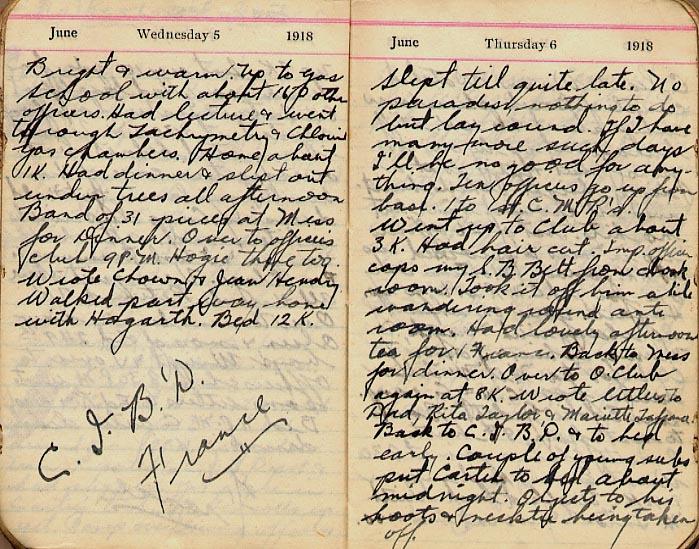 June Wednesday 5 1918
Bright & warm. Up to gas
school with about 160 other
officers. Had lecture & went
through Lachrymetry & Chlorine
gas chambers. Home about
1K. Had dinner & slept out
under trees all afternoon
Band of 31 pieces at Mess
for Dinner. Over to officers
Club 9 P.M. Hogie there too
Wrote Chown & Jean Hendry
Walked part way home
with Hogarth. Bed 12 K.
C. I. B. D.
France
June Thursday 6 1918
Slept till quite late. No
parades, nothing to do
but lay round. If I have
many more such days
I'll be no good for any-
thing. Ten officers go up from
base. 1 to C. M. R's.
Went up to Club about
3 K. Had hair cut. Imp. officer
cops my S. B. Belt from cloak
room. Took it off him a bit
wandering round ante
room. Had lovely afternoon
tea for 1 Franc. Back to Mess
for dinner. Over to O. Club
again at 8 K. Wrote letters to
Dad, Rita Taylor & Mariette
Back to C. I. B. D. & to bed
early. Couple of young subs
put Carter to bed about
midnight. Objects to his
boots & necktie being taken
off.